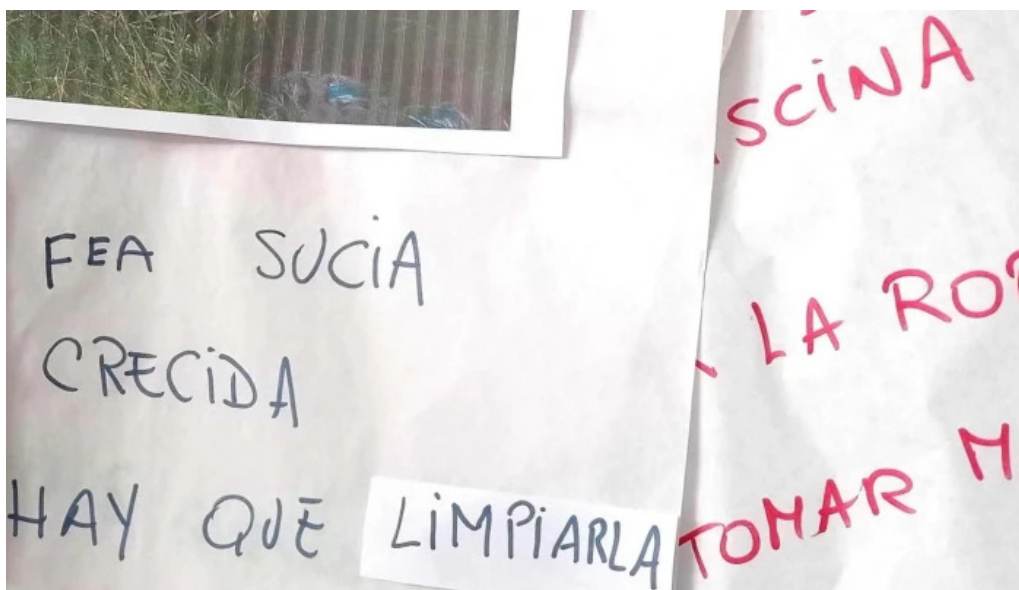 FEA SUCiA
CRECiDA
HAY QUE LiMPiARLA
SCiNA
LA
TOMAR